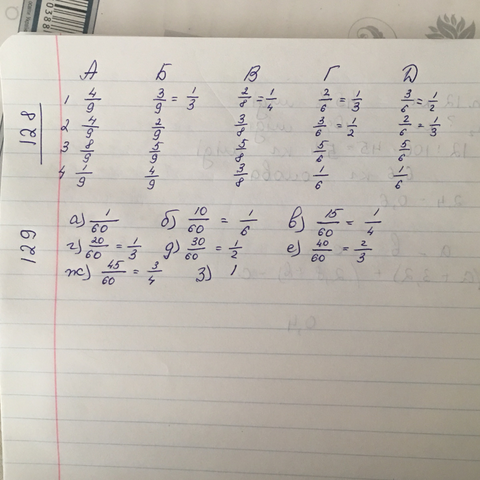 А Б В Г Д
128
1 4/9 3/9 = 1/3 2/8 = 1/4 2/6 = 1/3 3/6 = 1/2
2 4/9 2/9 3/8 3/6 = 1/2 2/6 = 1/3
3 8/9 5/9 5/8 5/6 5/6
4 1/9 4/9 3/8 1/6 1/6
129
а) 1/60 б) 10/60 = 1/6 в) 15/60 = 1/4
г) 20/60 = 1/3 д) 30/60 = 1/2 е) 40/60 = 2/3
ж) 45/60 = 3/4 з) 1